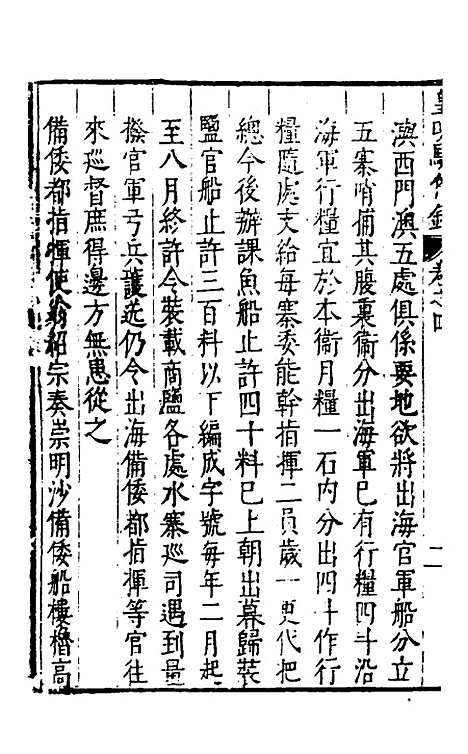 澳西門澳五處俱係要地欲將出海官軍船分立
五寨哨備其腹裏衞分出海軍已有行糧四斗沿
海軍行糧宜於本衞月糧一石内分出四斗作行
糧隨處支給每寨委能幹指揮二員歲一更代把
總今後辦課魚船止許四十料已上朝出暮歸裝
鹽官船止許三百料以下編成字號每年二月起
至八月終許令裝載商鹽各處水寨巡司遇到量
撥官軍弓兵護送仍令出海備倭都指揮等官往
來巡督庶得邊方無患從之
備倭都指揮使翁紹宗奏崇明沙備倭船樓櫓高